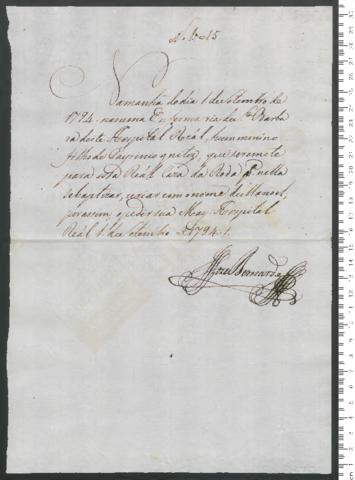 N. 615
Na manhã do dia 1 de Setembro de
1794. nasceu na Enfermaria de S.ta Barba
ra deste Hospital Real, hum menino
filho de Pay incognito, que se remete
para essa Real Caza da Roda p.a nella
se baptizar, e criar com o nome de Manoel,
por assim o pedir sua May. Hospital
Real 1 de Setembro de 1794.
Joze Bernardo